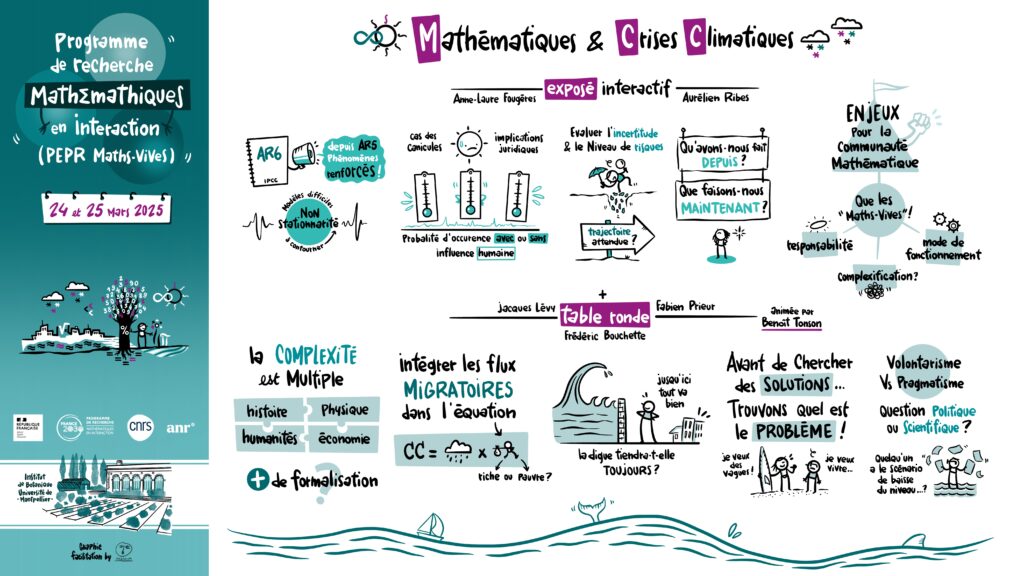 Programme
de recherche
MathΣmathiques
en interaction
(PEPR Maths-Vives)
24 et 25 Mars 2025
RÉPUBLIQUE
FRANÇAISE
FRANCE
2030
PROGRAMME
DE RECHERCHE
MATHÉMATIQUES
EN INTERACTION
cnrs
anr
Institut
de Botanique
Université de
Montpellier
Graphic
facilitation by
Mathématiques & Crises Climatiques
exposé interactif
Anne-Laure Fougères
Aurélien Ribes
AR6
IPCC
depuis AR5
Phénomènes
renforcés !
Modèles difficiles
Non
Stationnarité
à contourner
cas des
canicules
implications
juridiques
Probalité d'occurence avec ou sans
influence humaine
Evaluer l'incertitude
& le Niveau de risques
trajectoire
attendue ?
Qu'avons-nous fait
DEPUIS ?
Que faisons-nous
MAINTENANT ?
ENJEUX
Pour la
Communauté
Mathématique
Que les
"Maths-Vives" !
responsabilité
mode de
fonctionnement
Complexification ?
+
table ronde
Jacques Lévy
Fabien Prieur
Frédéric Bouchette
animée par
Benoît Tonson
la COMPLEXITÉ
est Multiple
histoire
Physique
humanités
économie
+ de formalisation
?
Intégrer les flux
MIGRATOIRES
dans l'équation
CC = x
riche ou pauvre ?
jusqu'ici
tout va
bien
la digue tiendra-t-elle
TOUJOURS ?
Avant de Chercher
des SOLUTIONS...
Trouvons quel est
le PROBLÈME !
je veux des
vagues !
je veux
vivre...
Volontarisme
Vs Pragmatisme
Question Politique
ou Scientifique ?
Quelqu'un
a le scénario
de baisse
du niveau...?